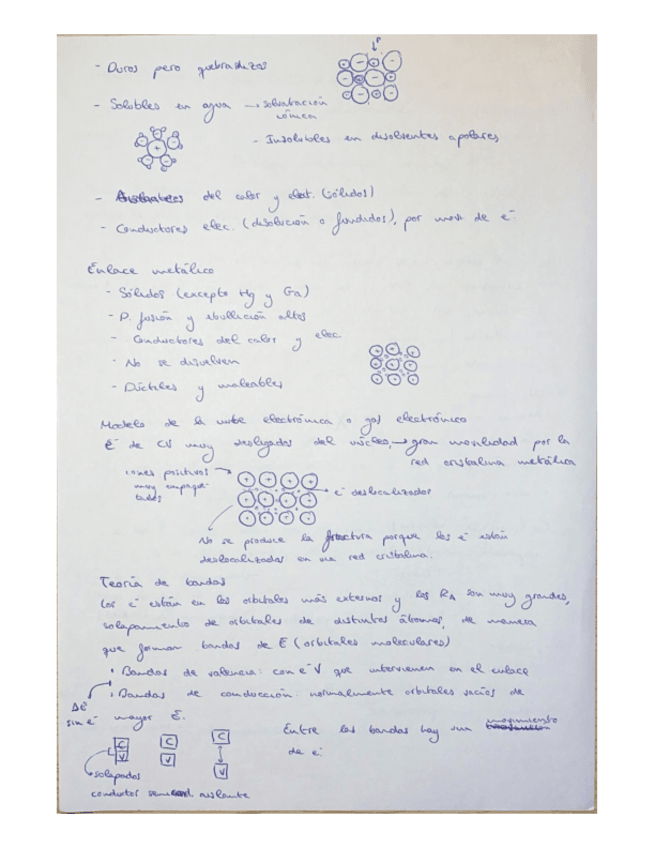 - Duros pero quebradizos
P
- Solubles en agua → solvatación iónica
- Insolubles en disolventes apolares
- del calor y elect. (sólidos)
- Conductores elec. (disolución o fundidos), por mov. de e⁻
Enlace metálico
- Sólidos (excepto Hg y Ga)
- P. fusión y ebullición altos
- Conductores del calor y elec.
- No se disuelven
- Dúctiles y maleables
Modelo de la nube electrónica o gas electrónico
e⁻ de CV muy desligados del núcleo, → gran movilidad por la
red cristalina metálica
iones positivos
muy empaque-
tados
e⁻ deslocalizados
No se produce la fractura porque los e⁻ están
deslocalizados en una red cristalina.
Teoría de bandas
Los e⁻ están en los orbitales más externos y los RA son muy grandes,
solapamiento de orbitales de distintos átomos, de manera
que forman bandas de E (orbitales moleculares)
• Bandas de valencia: con e⁻ V que intervienen en el enlace
• Bandas de conducción: normalmente orbitales vacíos de
ΔE
sin e⁻ mayor E.
Entre las bandas hay un movimiento
de e⁻
C C C
V V V
solapados
conductor semicond. aislante